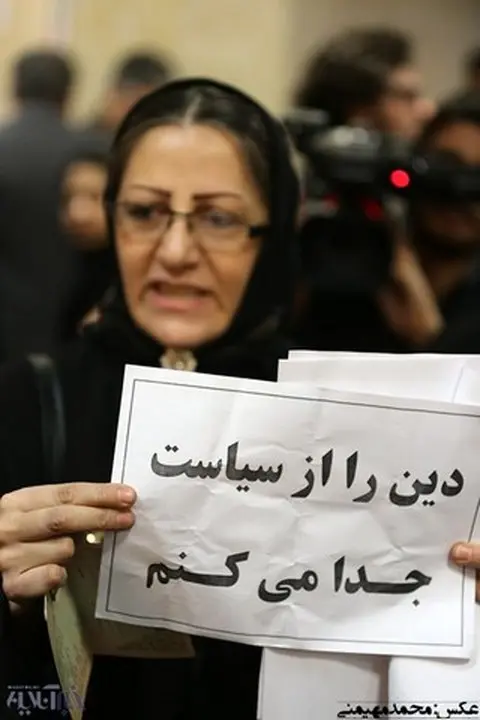 دین را از سیاست
جدا می کنم
عکس: محمد مهیمنی
خبرآنلاین